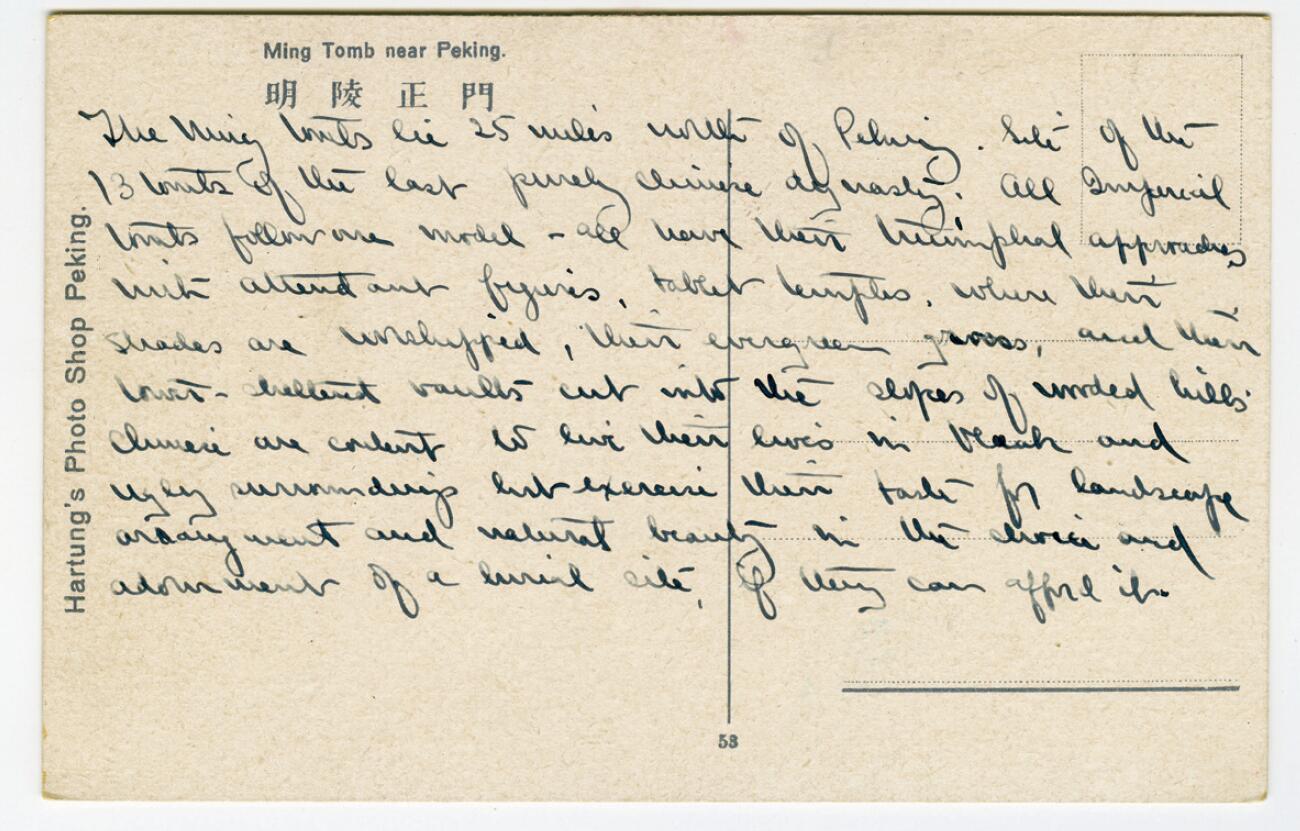 Ming Tomb near Peking.
明 陵 正 門
The Ming tombs lie 25 miles north of Peking. Site of the
13 tombs of the last purely Chinese dynasty. All Imperial
tombs follow one model - all have their triumphal approaches
with attendant figures, tablet temples, where their
shades are worshipped, their evergreen groves, and their
tower-sheltered vaults cut into the slopes of wooded hills.
Chinese are content to live their lives in bleak and
ugly surroundings but exercise their taste for landscape
arrangement and natural beauty in the choice and
adornment of a burial site, if they can afford it.
Hartung's Photo Shop Peking.
53